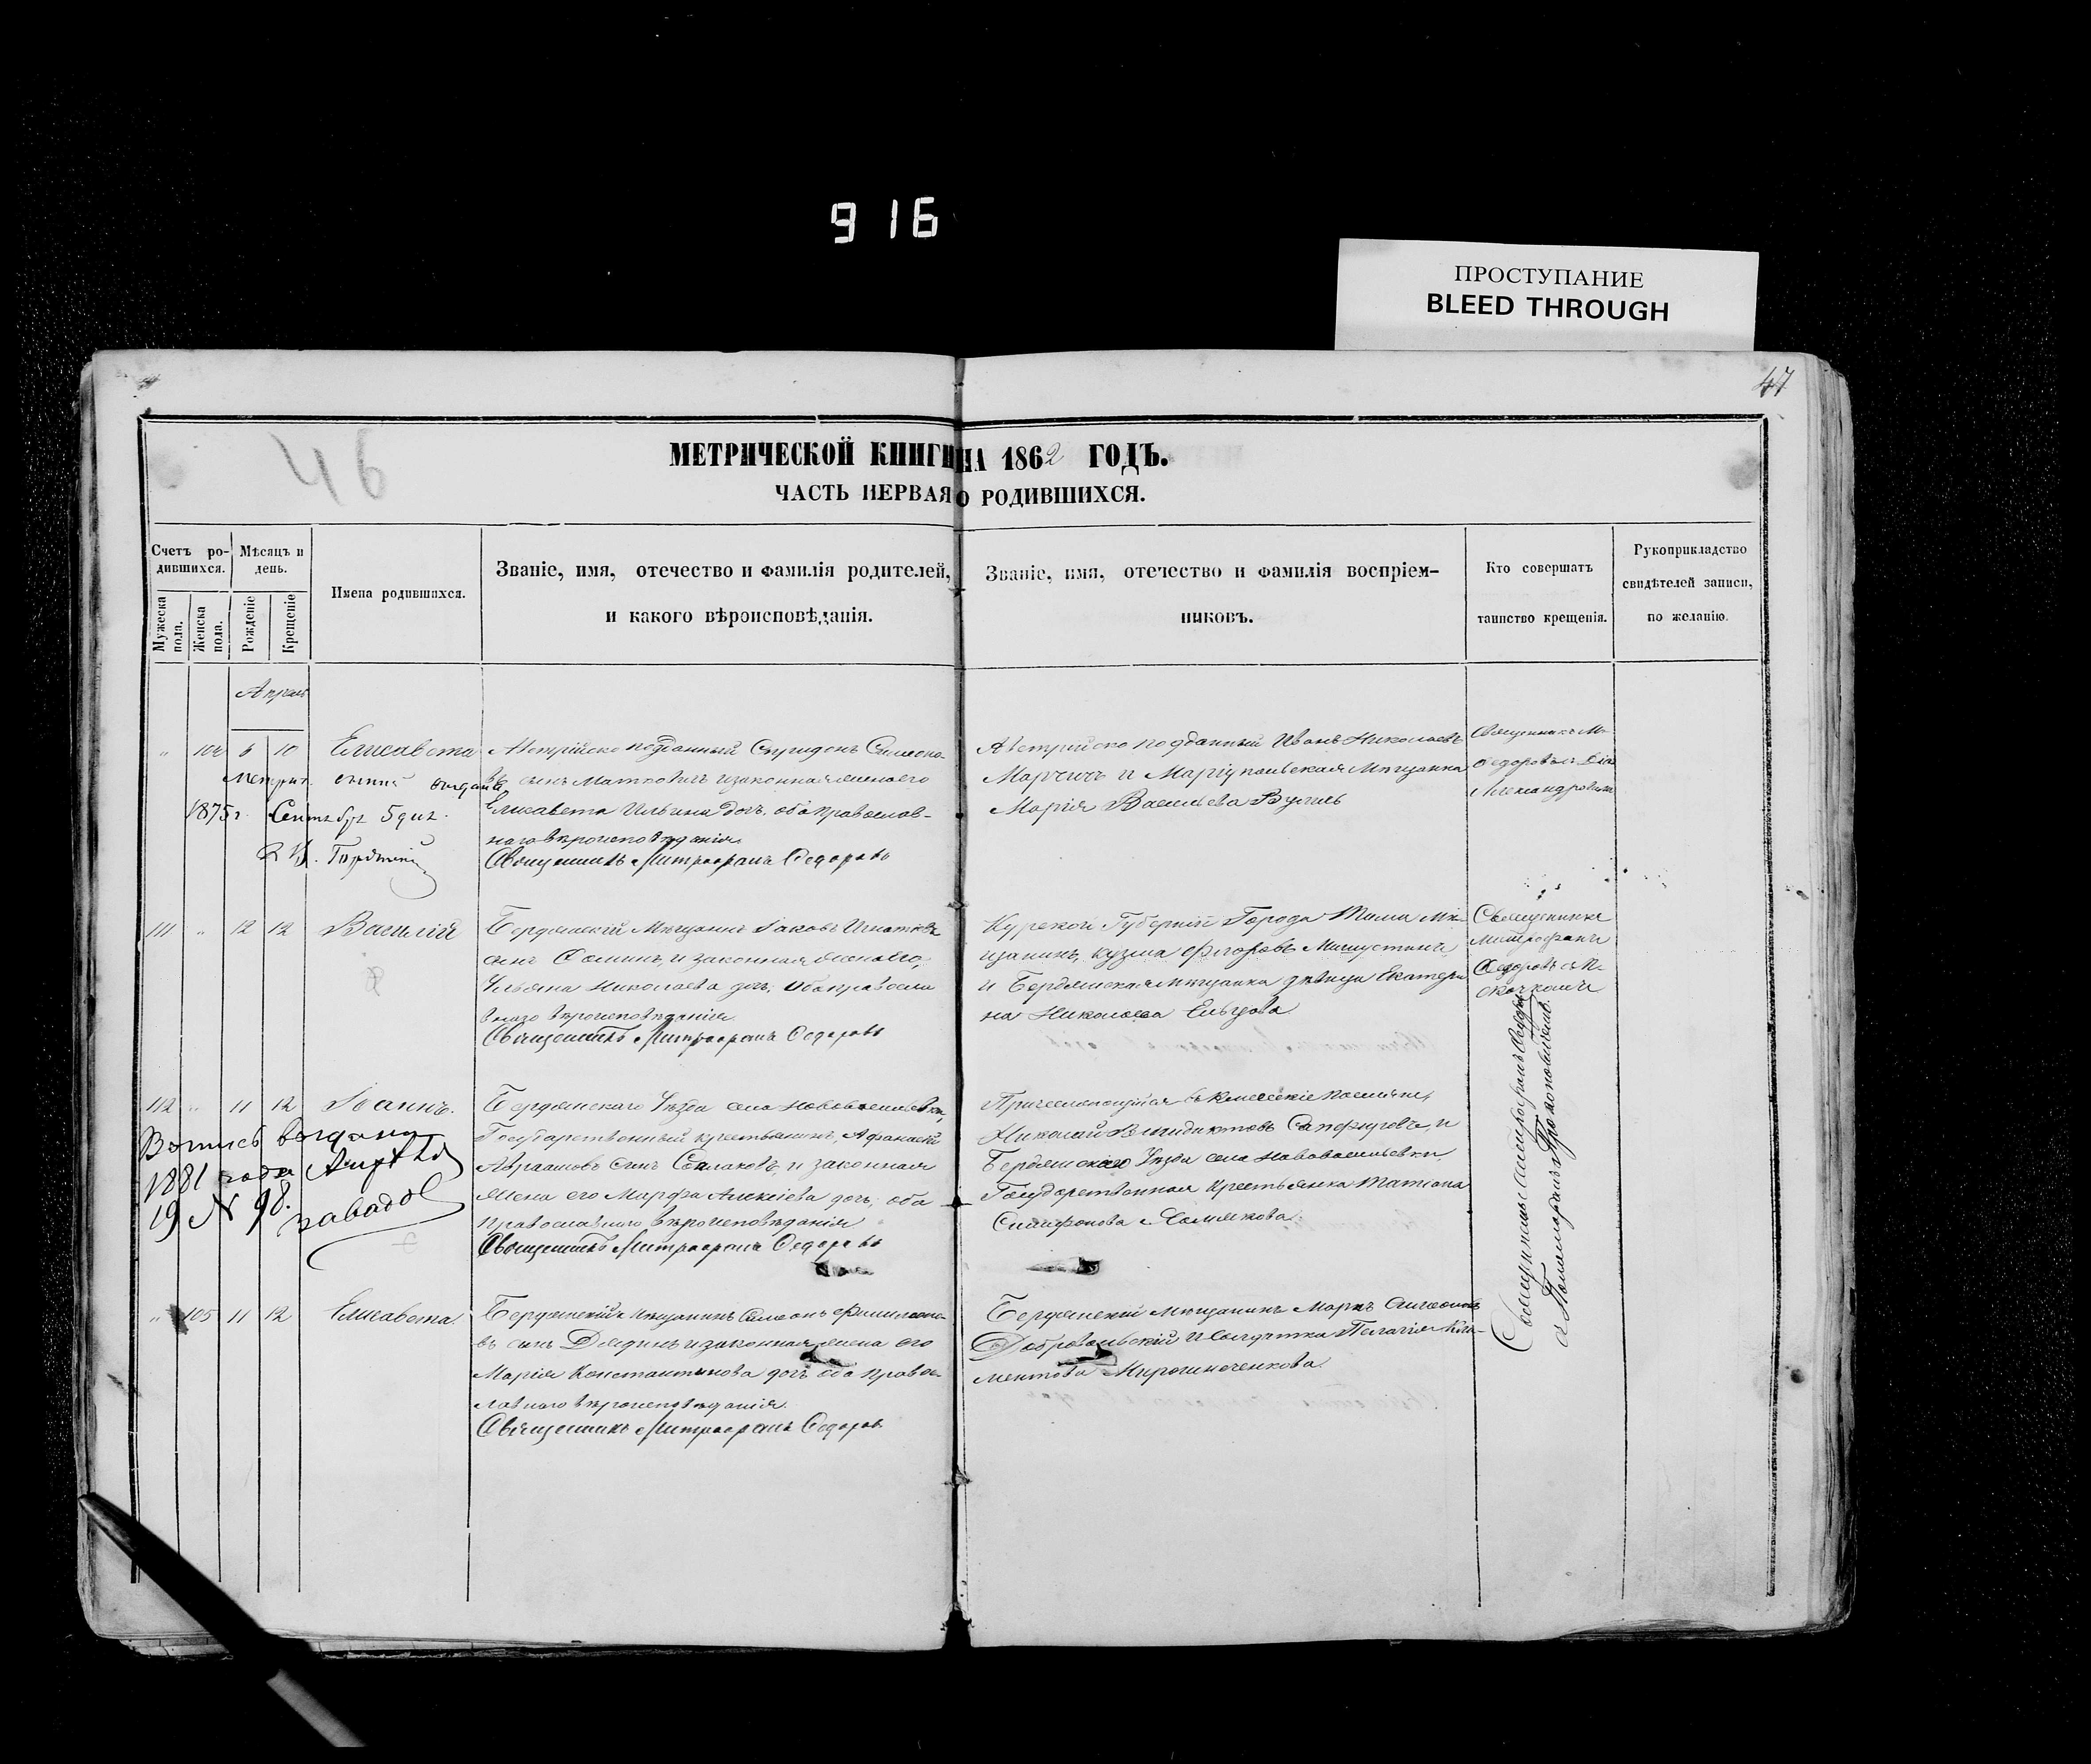 916
ПРОСТУПАНИЕ
BLEED THROUGH
47
46
МЕТРИЧЕСКОЙ КНИГИ НА 1862 ГОДЪ.
ЧАСТЬ ПЕРВАЯ О РОДИВШИХСЯ.
Счетъ родившихся.
Мужеска пола.
Женска пола.
Мѣсяцъ и день.
Рожденіе
Крещеніе
Имена родившихся.
Званіе, имя, отечество и фамилія родителей,
и какого вѣроисповѣданія.
Званіе, имя, отечество и фамилія воспріем-
никовъ.
Кто совершалъ
таинство крещенія.
Рукоприкладство
свидѣтелей записи,
по желанію.
Апрѣль
" 104 6 10 Елисавета
Австрійско подданный Спиридонъ Симеоно-
въ сынъ Матковичъ и законная жена его
Елисавета Ильина дочь, оба православ-
наго вѣроисповѣданія
Священникъ Митрофанъ Федоровъ
Австрійско подданный Иванъ Николаевъ
Марчичъ и Маріупольская Мѣщанка
Марія Васильева
Священникъ М.
Федоровъ
Александровымъ
1875 г. Сентября 5 дня.
111 " 12 12 Василій
Бердянскій Мѣщанинъ Іаковъ Игнатовъ
сынъ Соминъ, и законная жена его,
Ульяна Николаева дочь, оба православ
наго вѣроисповѣданія
Священникъ Митрофанъ Федоровъ
Курской Губерніи Города Тима Мѣ-
щанинъ Кузма Флоровъ Мишустинъ
и Бердянская мѣщанка дѣвица Екатери
на Николаева Ельцова
Священникъ
Митрофанъ
Федоровъ
112 " 11 12 Іоаннъ.
Бердянскаго Уѣзда села Нововасильевки,
Государственный крестьянинъ, Афанасій
Авраамовъ сынъ и законная
жена его Марфа Алексіева дочь, оба
православнаго вѣроисповѣданія
Священникъ Митрофанъ Федоровъ
Николай
Бердянскаго Уѣзда села Нововасильевки
Государственная крестьянка Татіана
1881 года
19 № 98.
Священникъ Митрофанъ Федоровъ
Пономаремъ Прокоповичемъ.
" 105 11 12 Елисавета.
Бердянскій Мѣщанинъ Симеонъ Филимоно-
въ сынъ и законная жена его
Марія Константинова дочь оба правос-
лавнаго вѣроисповѣданія
Священникъ Митрофанъ Федоровъ
Бердянскій мѣщанинъ Маркъ Симеоновъ
Добровольскій и солдатка Пелагія Кли-
ментова Мирошниченкова.